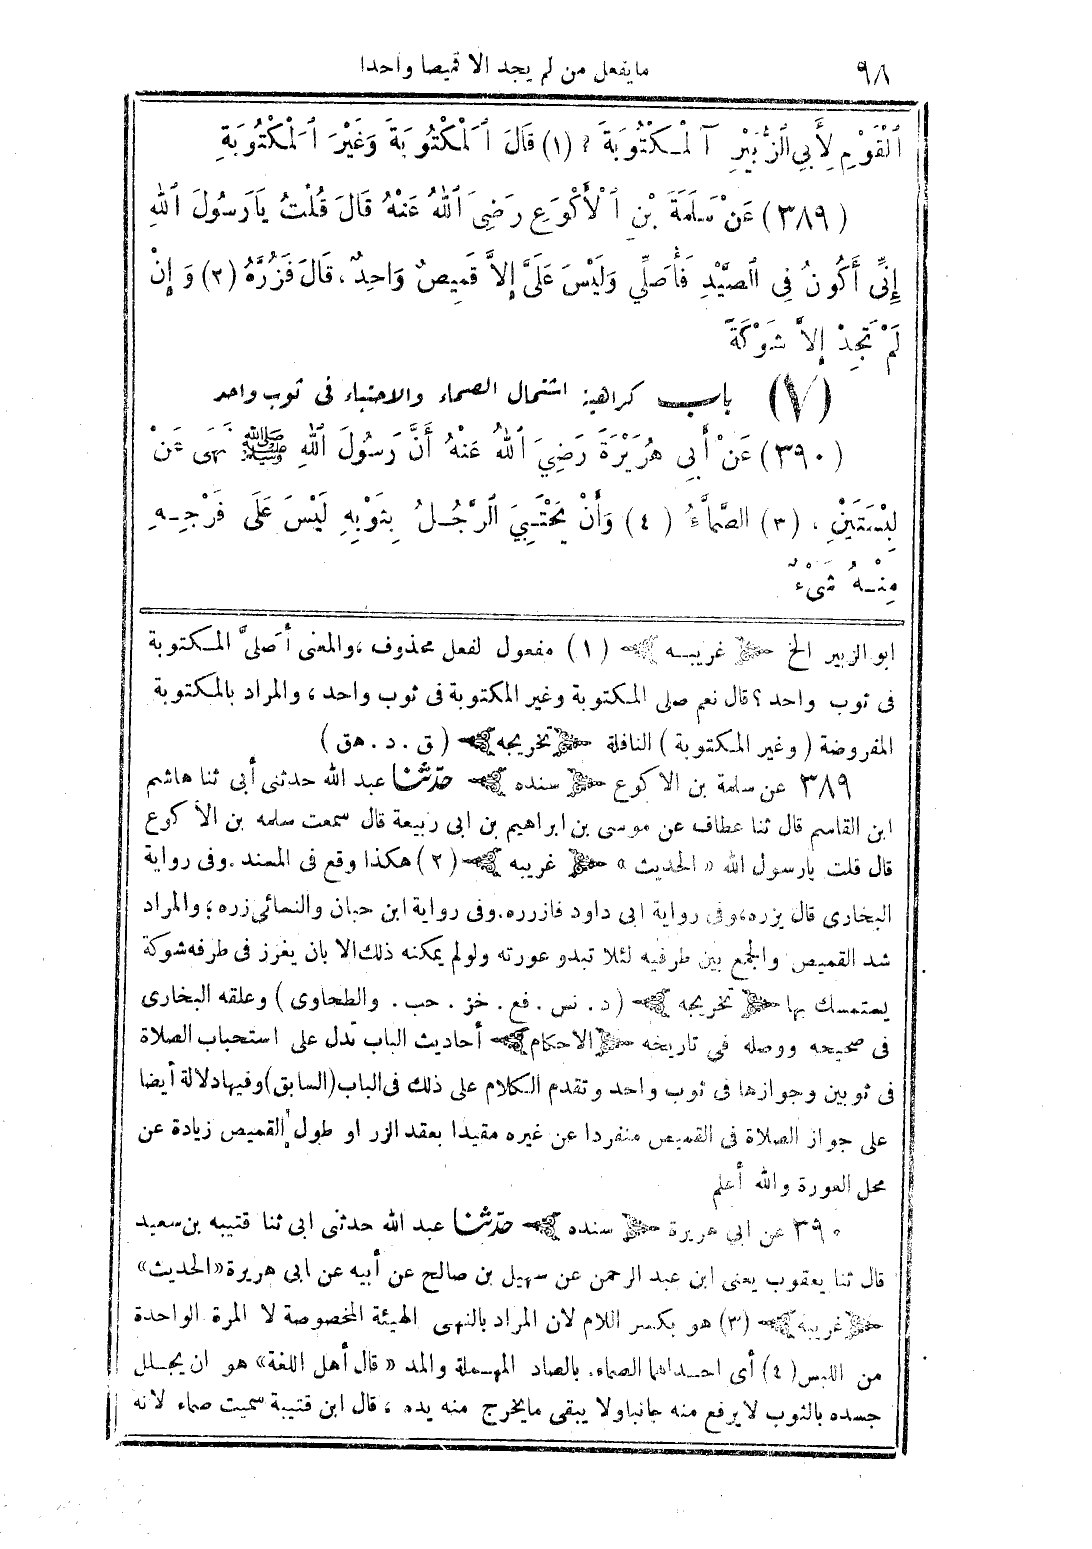 ٩٨
ما يفعل من لم يجد الا قميصا واحدا
ٱلْقَوْمِ لِأَبِي ٱلزُّبَيْرِ آلْمَكْتُوبَةَ ؟ (١) قَالَ ٱلْمَكْتُوبَةَ وَغَيْرَ ٱلْمَكْتُوبَةِ
(٣٨٩) عَنْ سَلَمَةَ بْنِ ٱلْأَكْوَعِ رَضِيَ ٱللّٰهُ عَنْهُ قَالَ قُلْتُ يَارَسُولَ ٱللّٰهِ
إِنِّي أَكُونُ فِى ٱلصَّيْدِ فَأُصَلِّي وَلَيْسَ عَلَيَّ إِلاَّ قَمِيصٌ وَاحِدٌ، قَالَ فَزُرَّهُ (٢) وَإِنْ
لَمْ تَجِدْ إِلاَّ شَوْكَةً
(٧) باب كراهية اشتمال الصماء والاحتباء فى ثوب واحد
(٣٩٠) عَنْ أَبِي هُرَيْرَةَ رَضِيَ ٱللّٰهُ عَنْهُ أَنَّ رَسُولَ ٱللّٰهِ ﷺ نَهَى عَنْ
لِبْسَتَيْنِ ، (٣) الصَّمَّاءُ (٤) وَأَنْ يَحْتَبِيَ ٱلرَّجُلُ بِثَوْبِهِ لَيْسَ عَلَى فَرْجِهِ
مِنْهُ شَيْءٌ
ابو الزبير الخ ﴿ غريبه ﴾ (١) مفعول لفعل محذوف ، والمعنى أصلىَّ المكتوبة
فى ثوب واحد ؟ قال نعم صلى المكتوبة وغير المكتوبة فى ثوب واحد ، والمراد بالمكتوبة
المفروضة (وغير المكتوبة) النافلة ﴿ تخريجه ﴾ (ق . د . هق)
٣٨٩ عن سلمة بن الاكوع ﴿ سنده ﴾ حدثنا عبد الله حدثنى أبى ثنا هاشم
ابن القاسم قال ثنا عطاف عن موسى بن ابراهيم بن ابى ربيعة قال سمعت سلمه بن الأكوع
قال قلت يارسول الله «الحديث» ﴿ غريبه ﴾ (٢) هكذا وقع فى المسند . وفى رواية
البخارى قال يزره، وفى رواية ابى داود فازرره . وفى رواية ابن حبان والنسائى زره ؛ والمراد
شد القميص والجمع بين طرفيه لئلا تبدو عورته ولو لم يمكنه ذلك الا بان يغرز فى طرفه شوكة
يستمسك بها ﴿ تخريجه ﴾ (د . نس . فع . خز . حب . والطحاوى) وعلقه البخارى
فى صحيحه ووصله في تاريخه ﴿ الاحكام ﴾ أحاديث الباب تدل على استحباب الصلاة
فى ثوبين وجوازها فى ثوب واحد وتقدم الكلام على ذلك فى الباب (السابق) وفيها دلالة أيضا
على جواز الصلاة فى القميص منفردا عن غيره مقيدا بعقد الزر او طول القميص زيادة عن
محل العورة والله أعلم
٣٩٠ عن ابى هريرة ﴿ سنده ﴾ حدثنا عبد الله حدثنى ابى ثنا قتيبه بن سعيد
قال ثنا يعقوب يعنى ابن عبد الرحمن عن سهيل بن صالح عن أبيه عن ابى هريرة «الحديث»
﴿ غريبه ﴾ (٣) هو بكسر اللام لان المراد بالنهى الهيئة المخصوصة لا المرة الواحدة
من اللبس (٤) أى احداهما الصماء. بالصاد المهملة والمد «قال أهل اللغة» هو ان يجلل
جسده بالثوب لا يرفع منه جانبا ولا يبقى مايخرج منه يده ، قال ابن قتيبة سميت صماء لانه